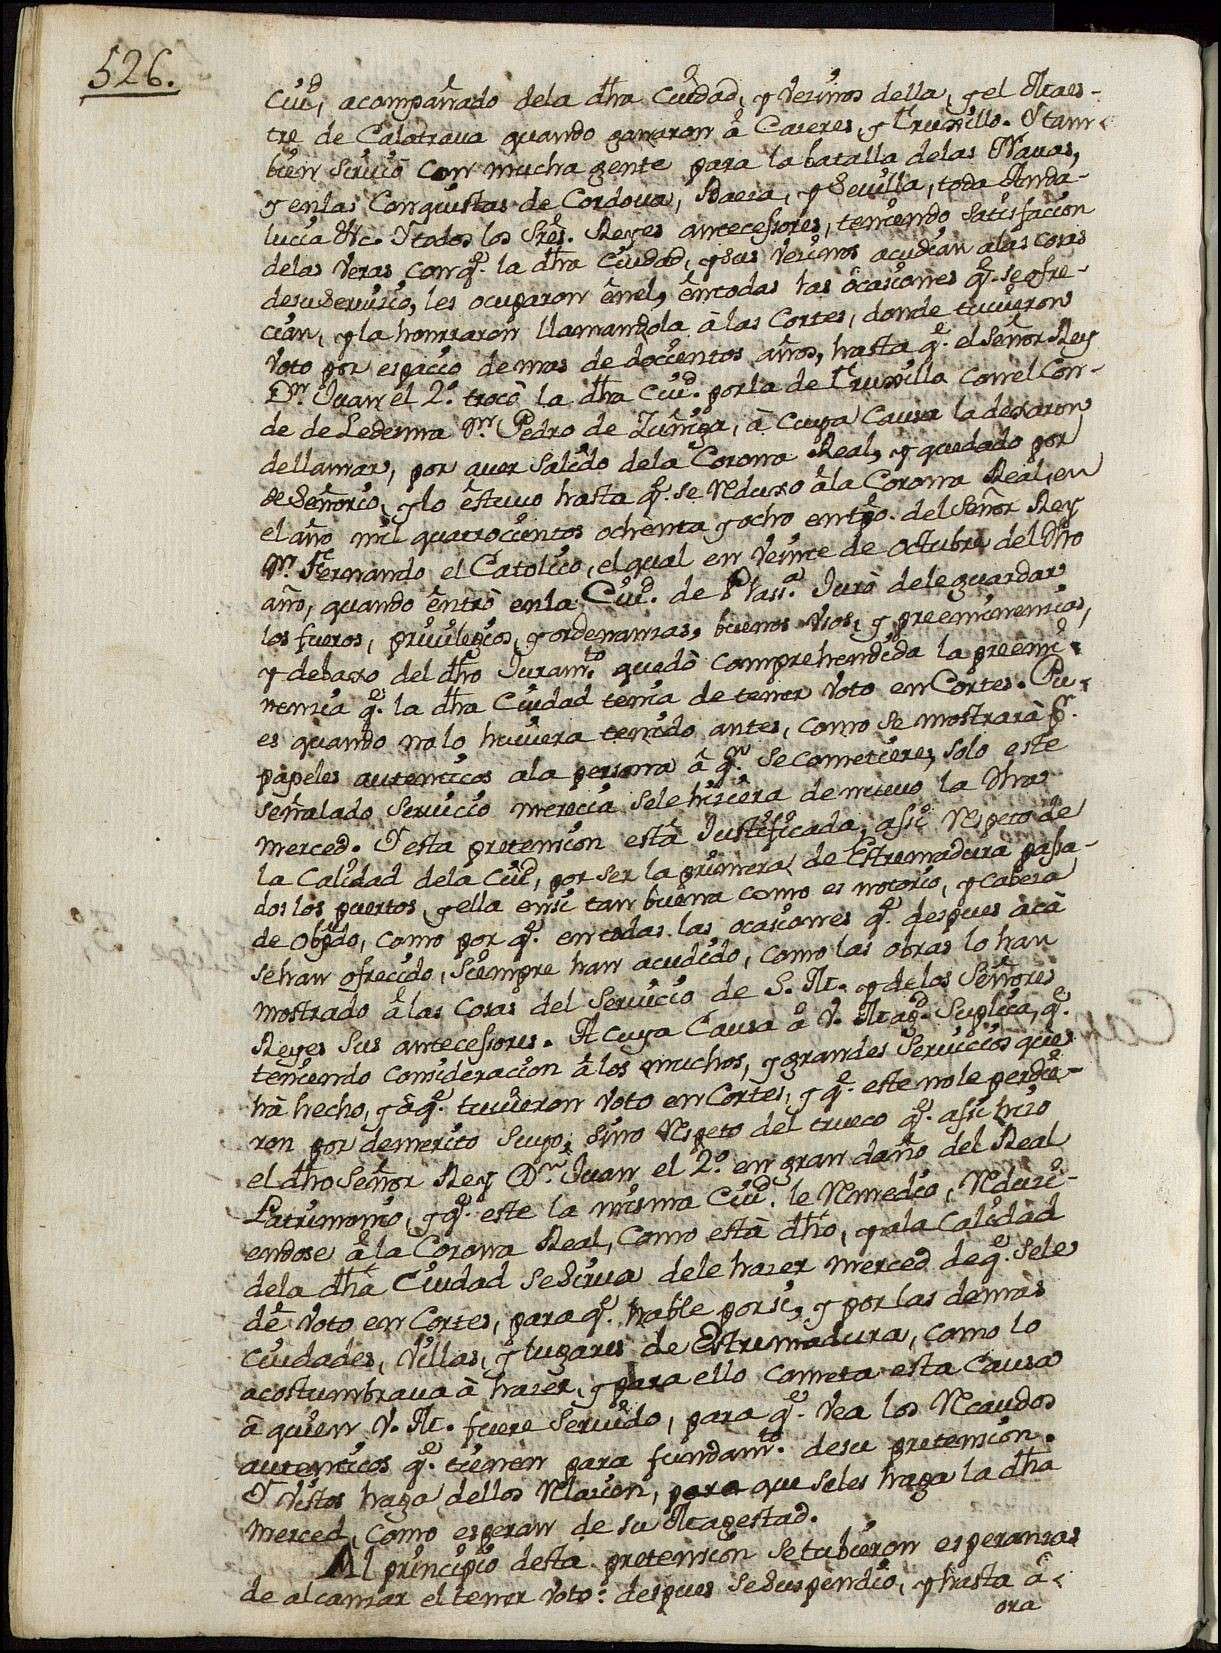 526.
Ciud, acompañado dela dha Ciudad, y vezinos della, y el Maes-
tre de Calatraua quando ganaron â Cazeres, y Truxillo. Y tam-
bien siruiò con mucha gente para la batalla delas Nauas,
y enlas Conquistas de Cordoua, Baeza, y Seuilla, toda Anda-
lucia &c. Y todos los Sres. Reyes antecessores, teniendo satisfacion
delas veras con q. la dha Ciudad, y sus vezinos acudian alas cosas
desu seruicio, les ocuparon ênel, êntodas las ôcasiones q. se ofre-
cian, y la honrraron llamandola à las Cortes, donde tuuieron
voto por espacio de mas de docientos años, hasta q. el Señor Rey
Dn. Juan el 2.º trocò la dha Ciud. por la de Truxillo con el Con-
de de Ledesma Dn. Pedro de Zuñiga, à cuya causa la dexaron
de llamar, por auer salido dela Corona Real, y quedado por
de Señorio, y lo êstuuo hasta q. se reduxo âla Corona Real, en
el año mil quatrocientos ochenta y ocho en tpo. del Señor Rey
Dn. Fernando el Catolico, el qual en veinte de Octubre del dho
año, quando êntrò enla Ciud. de Plasa. Jurò de le guardar
los fueros, priuilegios, y ordenanzas, buenos vsos, y preeminencias,
y debaxo del dho Juramto. quedò comprehendida la preemi-
nencia q. la dha Ciudad tenia de tener voto en Cortes. Pu-
es quando no lo huuiera tenido antes, como se mostrarà pr.
papeles autenticos ala persona â qn. se cometiere, solo este
señalado seruicio merecia sele hiziera de nueuo la dha
merced. Y esta pretension està Justificada, assi respeto de
la calidad dela Ciud, por ser la primera de Estremadura passa-
dos los puertos, y ella ensi tan buena como es notorio, y cabeza
de Obpdo, como por q. en todas las ocasiones q. despues acà
se han ofrecido, siempre han acudido, como las obras lo han
mostrado â las cosas del seruicio de S. M. y delos Señores
Reyes sus antecessores. A cuya causa â V. Magd. suplica, q.
teniendo consideracion â los muchos, y grandes seruicios que
hà hecho, y â q. tuuieron voto en Cortes, y q. este no le perdie-
ron por demerito suyo, sino respeto del trueco q. assi hizo
el dho Señor Rey Dn. Juan el 2.º en gran daño del Real
Patrimonio, y q. este la misma Ciud. le remediò, reduzi-
endose â la Corona Real, como està dho, y ala calidad
dela dha Ciudad se sirua dele hazer merced de q. sele
dè voto en Cortes, para q. hable por si, y por las demas
ciudades, villas, y lugares de Estremadura, como lo
acostumbraua à hazer, y para ello cometa esta causa
â quien V. M. fuere seruido, para q. vea los recaudos
autenticos q. tienen para fundamto. desu pretension.
Y vistos haga dellos relacion, para que seles haga la dha
merced, como esperan de su Magestad.
Al principio desta pretension se tubieron esperanzas
de alcanzar el tener voto: despues se suspendiò, y hasta â-
ora